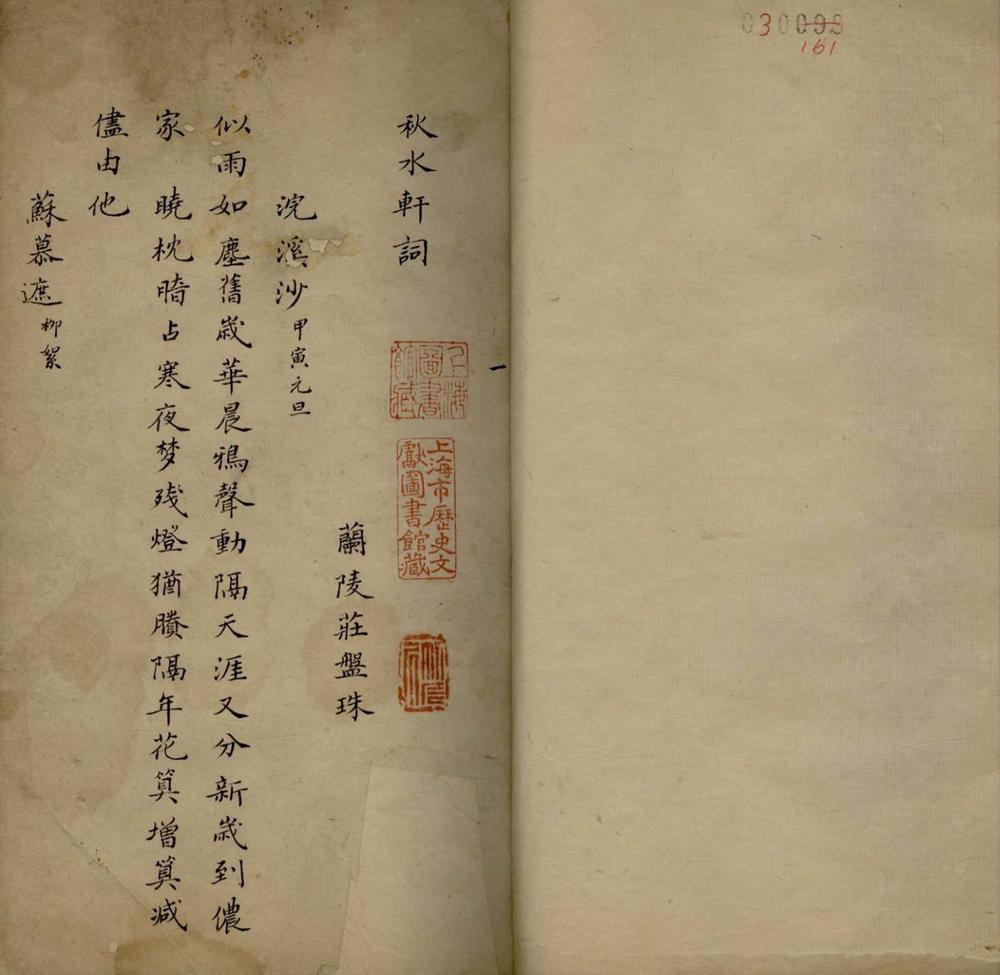 030098
161
秋水軒詞
一
上海圖書館藏
上海市歷史文獻圖書館藏
蘭陵莊盤珠
浣溪沙甲寅元旦
似雨如塵舊嵗華晨鴉聲動隔天涯又分新嵗到儂
家　曉枕暗占寒夜梦残燈猶賸隔年花算增算减
儘由他
蘇慕遮柳絮